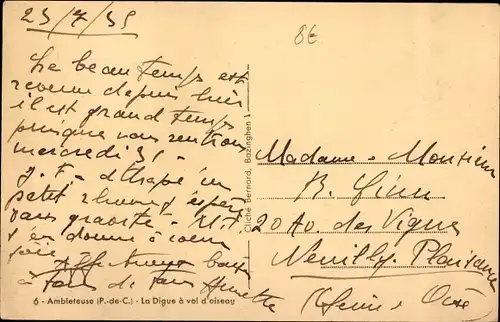 23/7/35
8€
Le beau temps est
revenu depuis hier
il est grand temps
puisque nous rentrons
mercredi 31 -
J. F. attrapé un
petit rhume j'espère
sans gravité -
s'en donne à coeur
joie Affectueux bais
à tous de tous
Madame - Monsieur
B.
20 Av. des Vignes
Neuilly-Plaisance
(Seine & Oise)
Cliché Bernard, Bazinghen
6 - Ambleteuse (P.-de-C.) - La Digue à vol d'oiseau